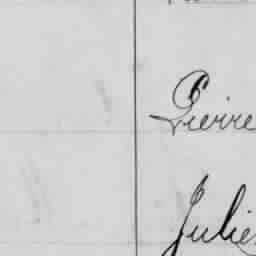 Pierre
Julie